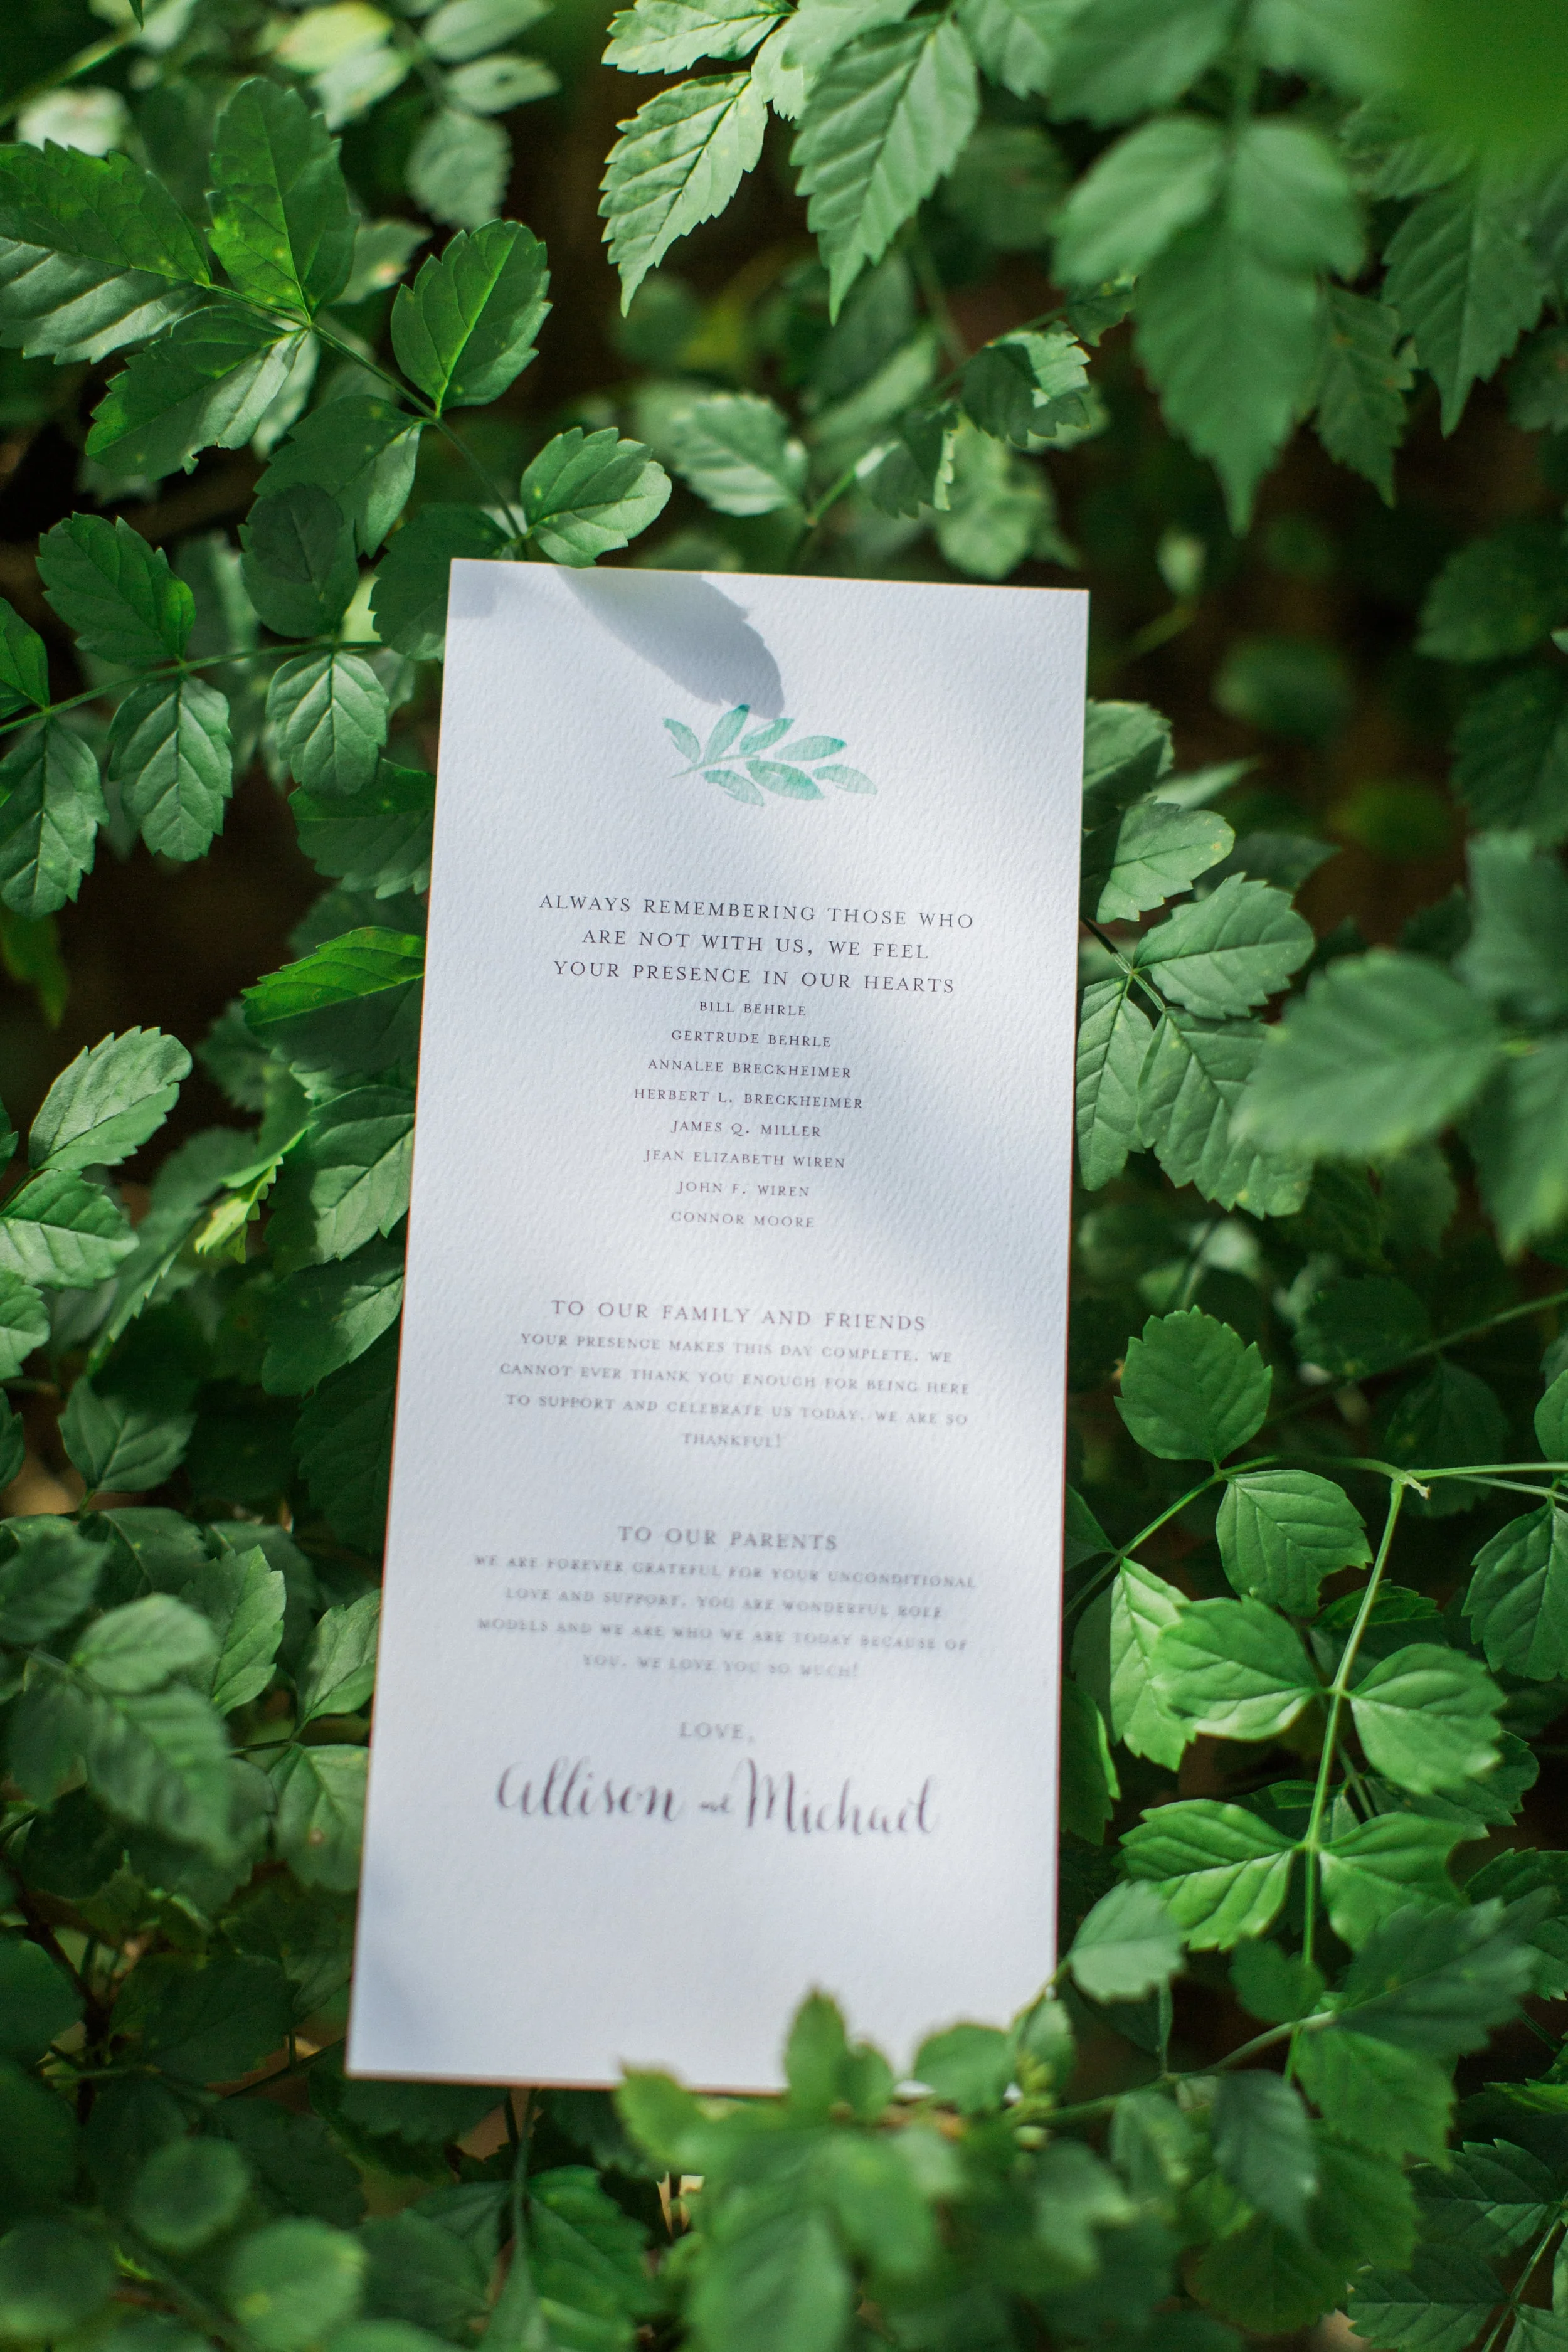 ALWAYS REMEMBERING THOSE WHO
ARE NOT WITH US, WE FEEL
YOUR PRESENCE IN OUR HEARTS
BILL BEHRLE
GERTRUDE BEHRLE
ANNALEE BRECKHEIMER
HERBERT L. BRECKHEIMER
JAMES Q. MILLER
JEAN ELIZABETH WIREN
JOHN F. WIREN
CONNOR MOORE
TO OUR FAMILY AND FRIENDS
YOUR PRESENCE MAKES THIS DAY COMPLETE. WE
CANNOT EVER THANK YOU ENOUGH FOR BEING HERE
TO SUPPORT AND CELEBRATE US TODAY. WE ARE SO
THANKFUL!
TO OUR PARENTS
WE ARE FOREVER GRATEFUL FOR YOUR UNCONDITIONAL
LOVE AND SUPPORT. YOU ARE WONDERFUL ROLE
MODELS AND WE ARE WHO WE ARE TODAY BECAUSE OF
YOU. WE LOVE YOU SO MUCH!
LOVE,
Allison and Michael